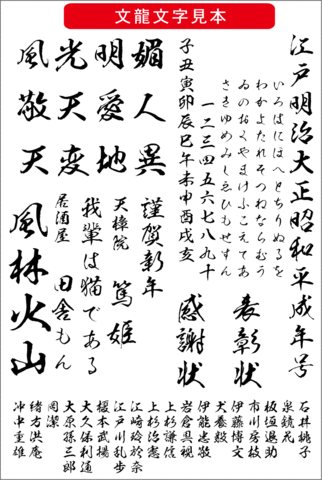 文龍文字見本
江戸明治大正昭和平成年号
いろはにほへとちりぬるを
わかよたれそつねならむう
ゐのおくやまけふこえてあ
さきゆめみしゑひもせすん
一二三四五六七八九十
子丑寅卯辰巳午未申酉戌亥
表彰状
感謝状
媚人異
明愛地
光天変
風敬天
謹賀新年
天璋院 篤姫
我輩は猫である
居酒屋 田舎もん
風林火山
石井桃子
泉鏡花
板垣退助
市川房枝
伊藤博文
犬養毅
伊能忠敬
岩倉具視
上杉謙信
上杉治憲
江崎玲於奈
江戸川乱歩
榎本武揚
大久保利通
大原孫三郎
岡潔
緒方洪庵
沖中重雄